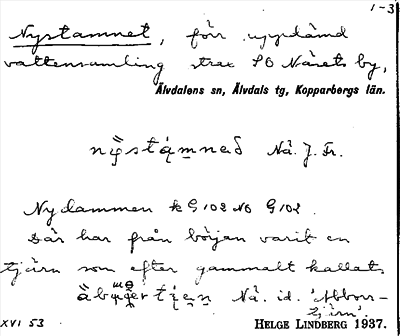 1-3
Nystamnet, förr uppdämd
vattensamling strax SO Nåsets by,
Älvdalens sn, Älvdals tg, Kopparbergs län.
Nå. J. Fr.
Nydammen k G 102 NO G 102.
Där har från början varit en
tjärn som efter gammalt kallats
Nå. id. 'Abborr-
tjärn'.
XVI 53 HELGE LINDBERG 1937.